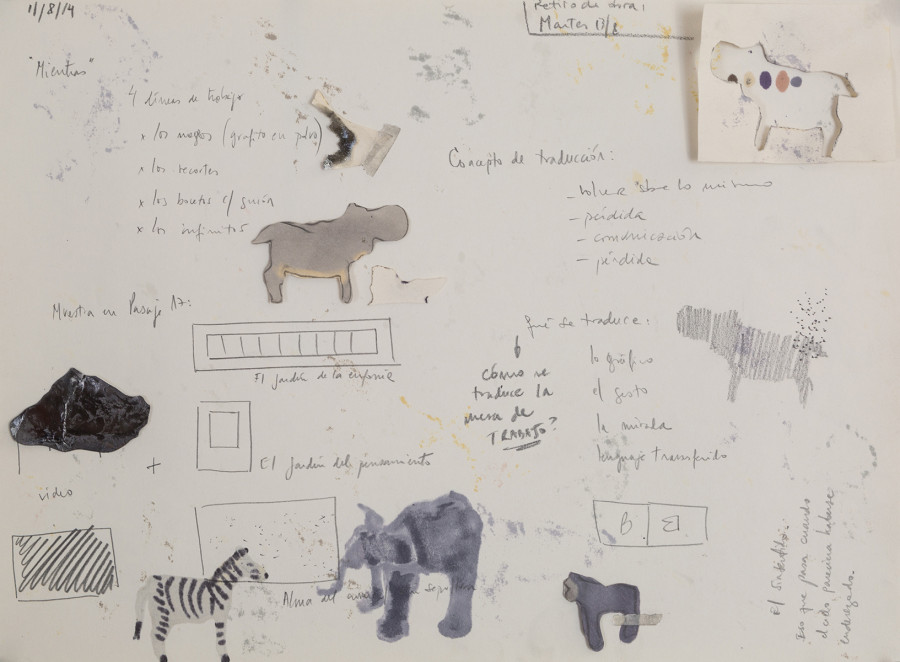 11/8/14
Retiro de obra:
Martes 13/8
"Mientras"
4 líneas de trabajo
x los negros (grafito en polvo)
x los recortes
x los bocetos c/ guión
x los infinitos
Concepto de traducción:
- volver sobre lo mismo
- pérdida
- comunicación
- pérdida
Muestra en Pasaje 17:
El jardín de la
+
El jardín del pensamiento
video
Alma del
Qué se traduce:
lo gráfico
el gesto
la mirada
lenguaje transferido
cómo se
traduce la
mesa de
TRABAJO?
B B
El
Es que pasa cuando
parecían haberse
enderezado.